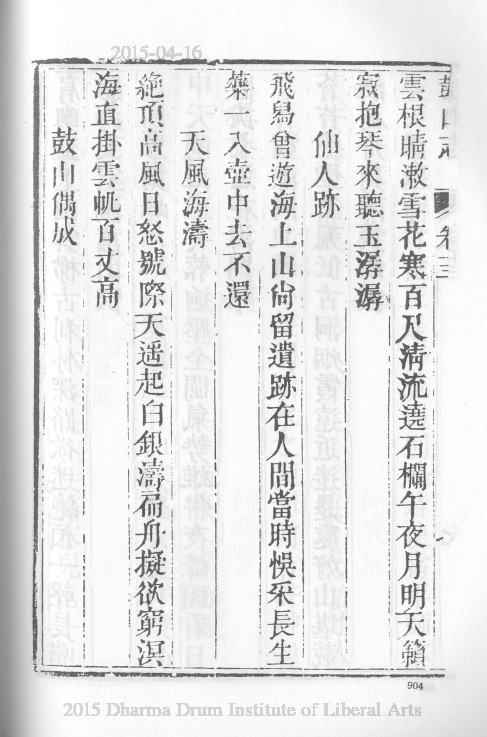 2015-04-16
鼓山志 卷十三
雲根晴漱雪花寒百尺清流遶石欄午夜月明天籟
寂抱琴來聽玉潺潺
仙人跡
飛舃曾遊海上山尙留遺跡在人間當時悞采長生
藥一入壺中去不還
天風海濤
絶頂高風日怒號際天遥起白銀濤扁舟擬欲窮溟
海直掛雲帆百丈高
鼓山偶成
904
2015 Dharma Drum Institute of Liberal Arts